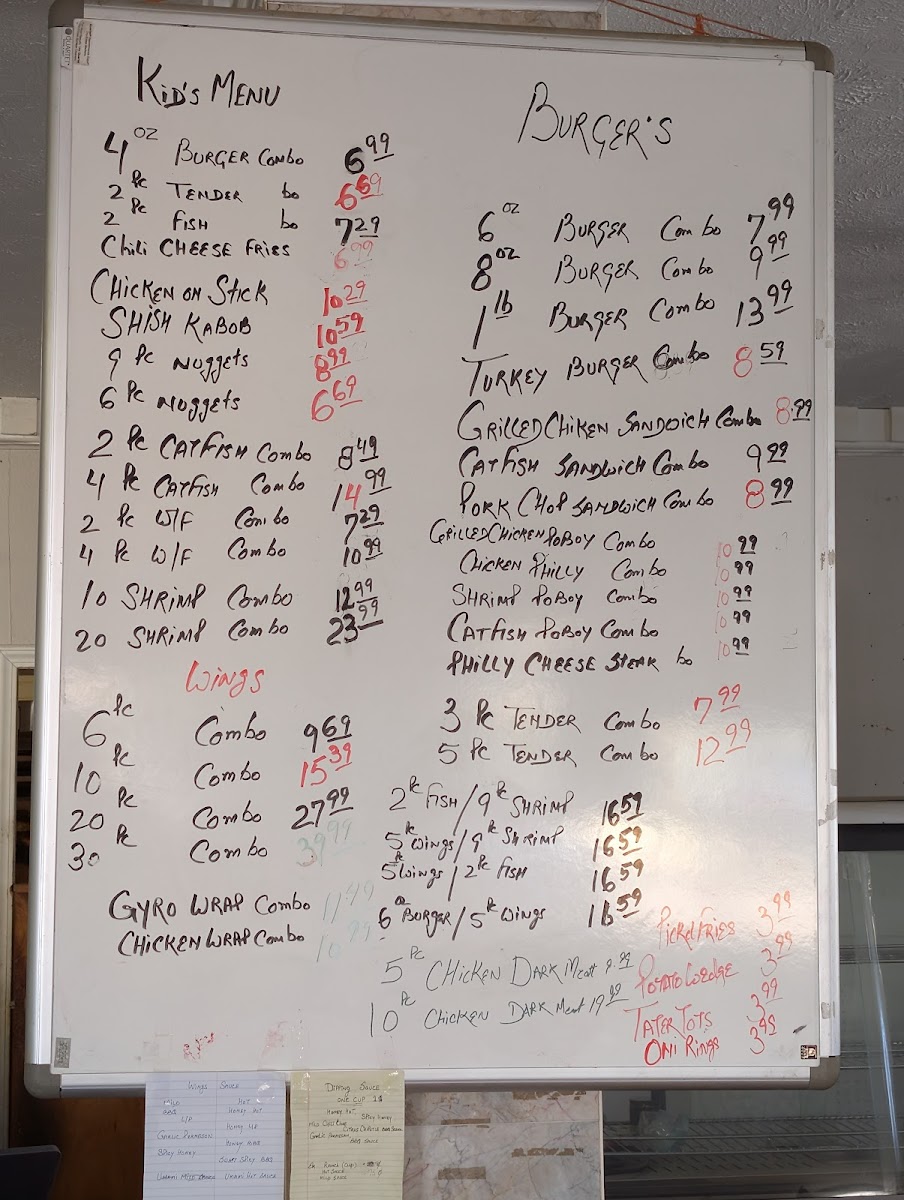 Kid's MENU
4 oz BURGER Combo 6.99
2 Pc TENDER bo 6.69
2 Pc FISH bo 7.29
Chili CHEESE FRIES 6.99
CHICKEN ON STICK 10.29
SHISH KABOB 10.59
9 Pc NUGGETS 8.99
6 Pc NUGGETS 6.69
2 Pc CATFISH Combo 8.49
4 Pc CATFISH Combo 14.99
2 Pc W/F Combo 7.29
4 Pc W/F Combo 10.99
10 SHRIMP Combo 12.99
20 SHRIMP Combo 23.99
WINGS
6 Pc Combo 9.69
10 Pc Combo 15.39
20 Pc Combo 27.99
30 Pc Combo 39.99
GYRO WRAP Combo 11.49
CHICKEN WRAP Combo 10.99
BURGER'S
6 oz BURGER Combo 7.99
8 oz BURGER Combo 9.99
1 lb BURGER Combo 13.99
TURKEY BURGER Combo 8.59
GRILLED CHIKEN SANDWICH Combo 8.99
CATFISH SANDWICH Combo 9.99
PORK CHOP SANDWICH Combo 8.99
GRILLED CHICKEN POBOY Combo 10.99
CHICKEN PHILLY Combo 10.99
SHRIMP POBOY Combo 10.99
CATFISH POBOY Combo 10.99
PHILLY CHEESE STEAK bo 10.99
3 Pc TENDER Combo 7.99
5 Pc TENDER Combo 12.99
2 Pc FISH / 9 Pc SHRIMP 16.59
5 Pc WINGS / 9 Pc SHRIMP 16.59
5 Pc WINGS / 2 Pc FISH 16.59
6 oz BURGER / 5 Pc WINGS 16.59
5 Pc CHICKEN DARK Meat 9.99
10 Pc CHICKEN DARK Meat 19.99
PICKEL FRIES 3.99
POTATO WEDGE 3.99
TATER TOTS 3.99
ONI RINGS 3.99
WINGS SAUCE
MILD HOT
BBQ HONEY HOT
L/P
GARLIC PARMESAN
SPICY HONEY
SWEET SPICY BBQ
DIPPING SAUCE
ONE CUP 1$
HONEY HOT
SPICY HONEY
GARLIC PARMESAN
BBQ SAUCE
HOT SAUCE
MILD SAUCE